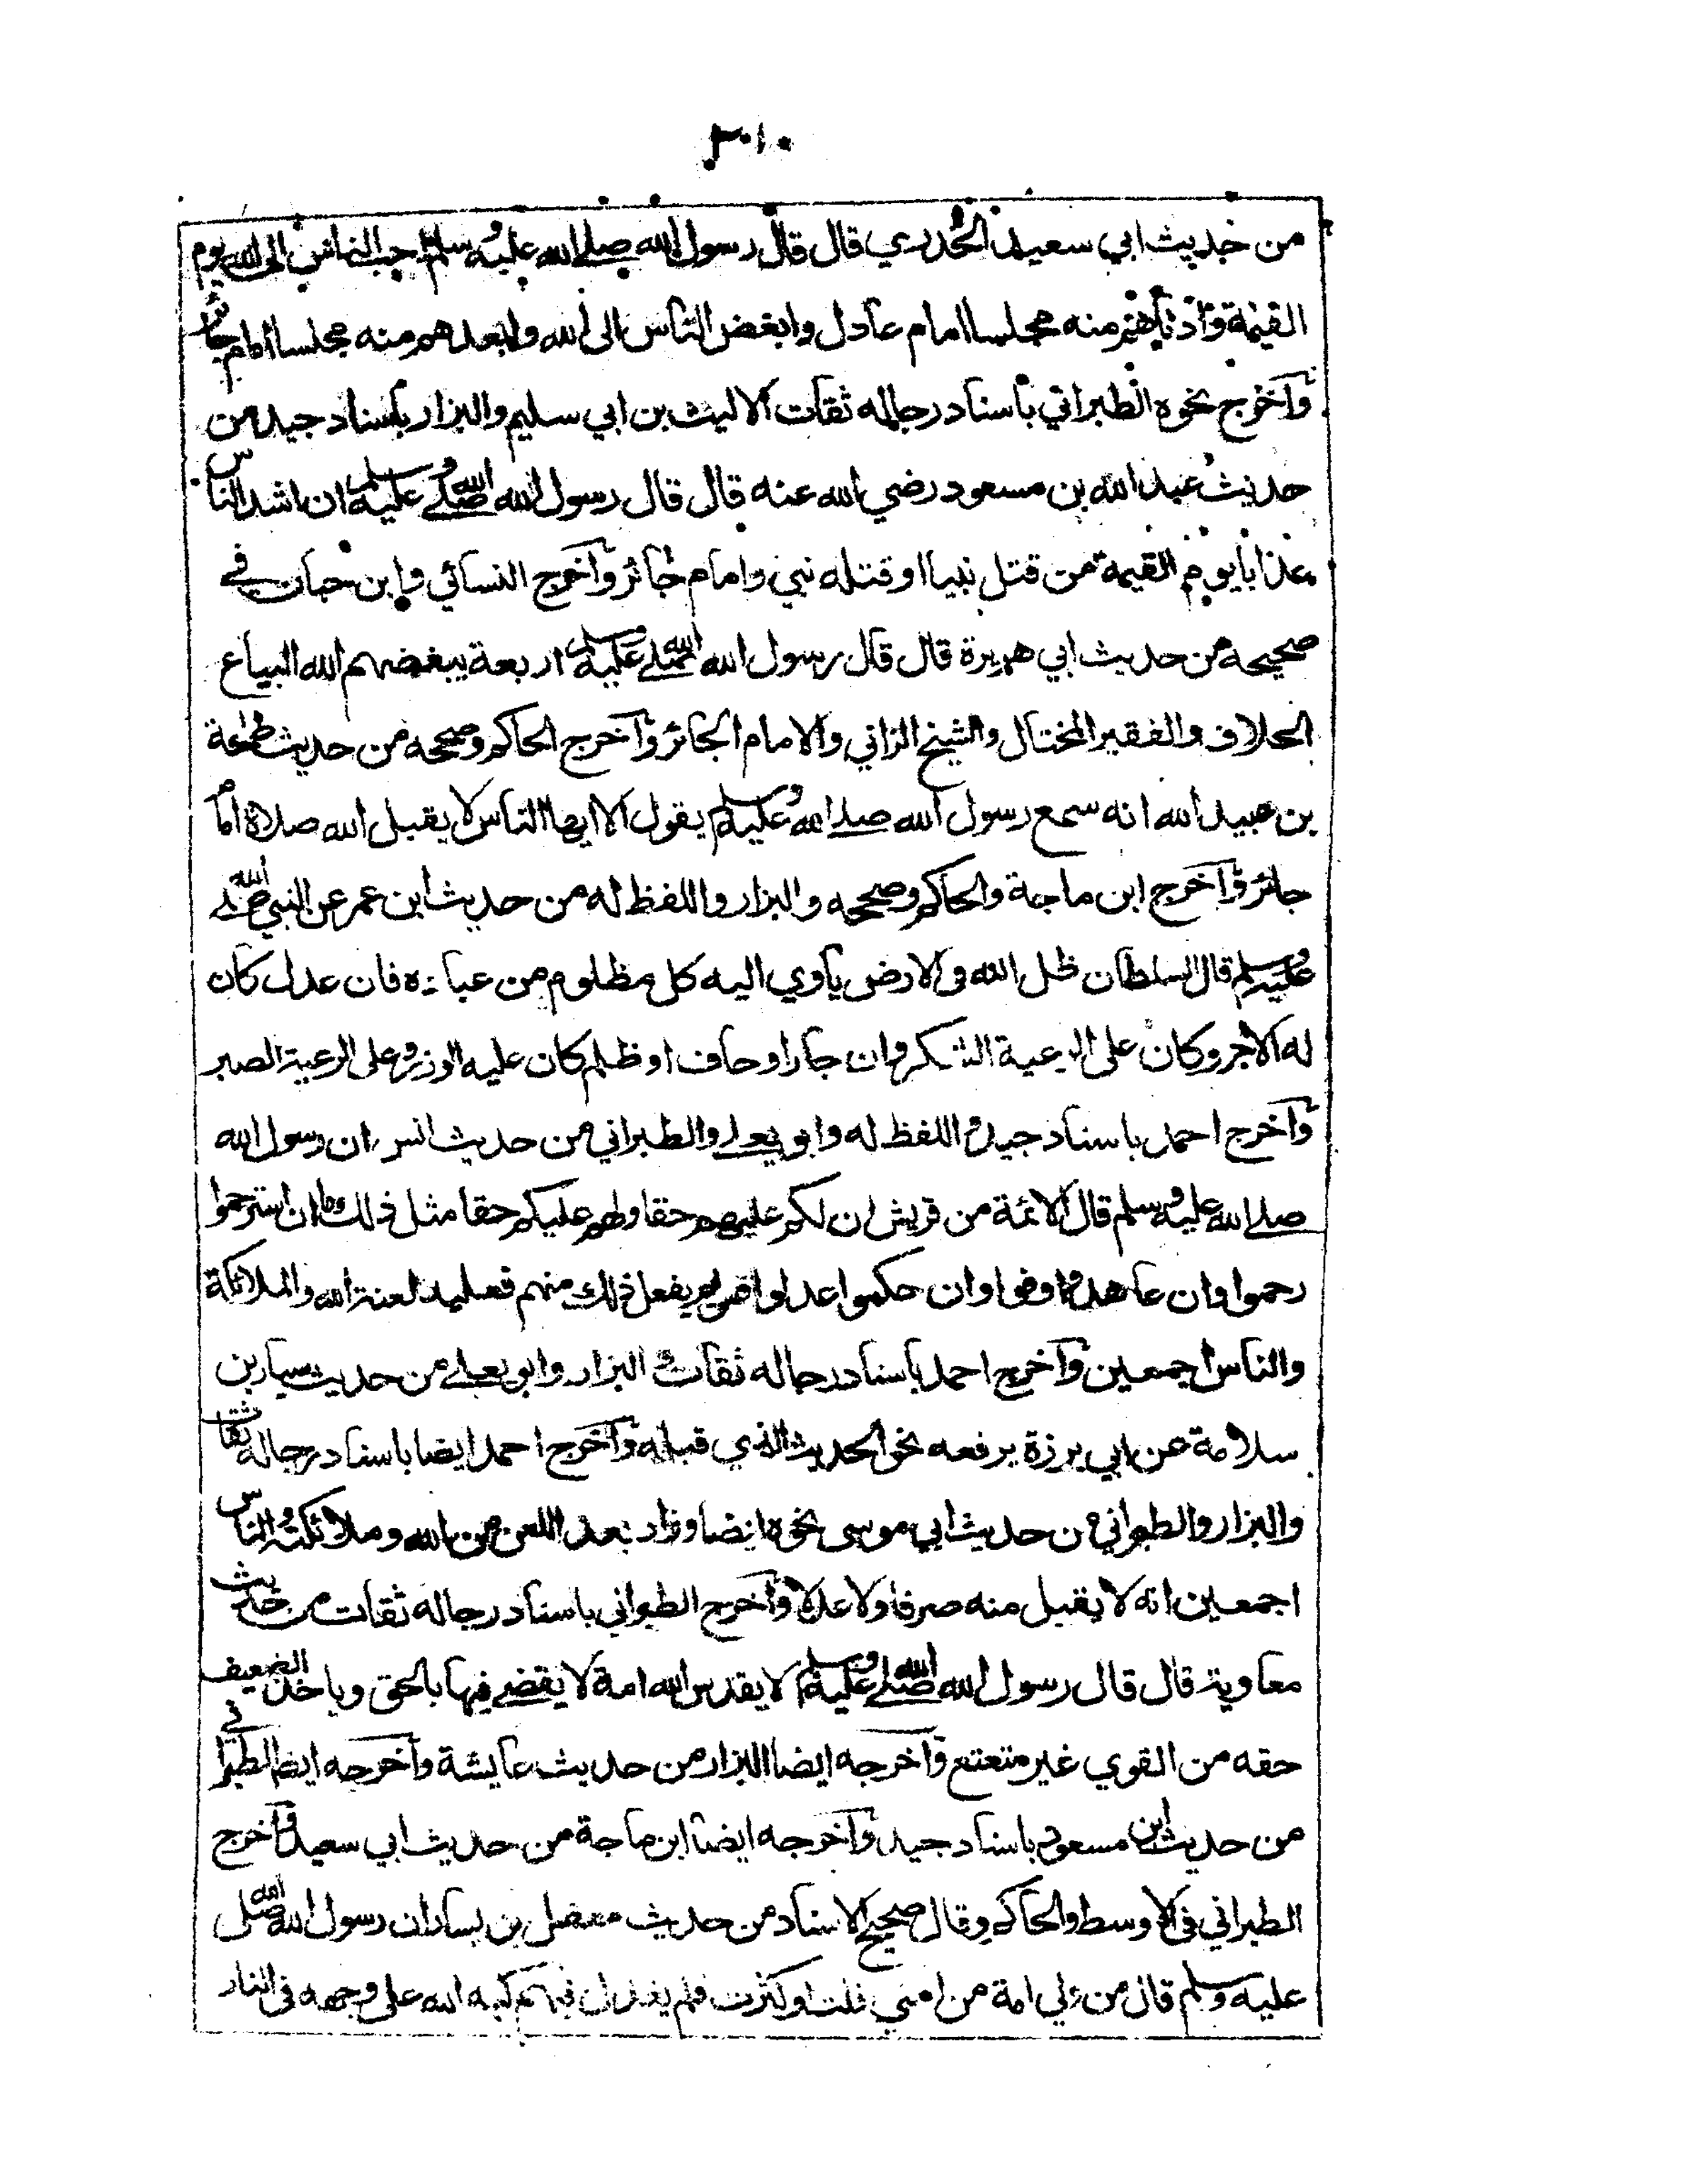 ٣٠١٠
من حديث ابي سعيد الخدري قال قال رسول الله صلى الله عليه وسلم احب الناس الى الله يوم
القيمة وادناهم منه مجلسا امام عادل وابغض الناس الى الله وابعدهم منه مجلسا امام جائر
واخرج نحوه الطبراني باسناد رجاله ثقات الا ليث بن ابي سليم والبزار باسناد جيد من
حديث عبد الله بن مسعود رضي الله عنه قال قال رسول الله صلى الله عليه وسلم ان اشد الناس
عذابا يوم القيمة من قتل نبيا او قتله نبي وامام جائر واخرج النسائي وابن حبان في
صحيحه من حديث ابي هريرة قال قال رسول الله صلى الله عليه وسلم اربعة يبغضهم الله البياع
الحلاف والفقير المختال والشيخ الزاني والامام الجائر واخرج الحاكم وصححه من حديث طلحة
بن عبيد الله انه سمع رسول الله صلى الله عليه وسلم يقول الا ايها الناس لا يقبل الله صلاة امام
جائر واخرج ابن ماجة والحاكم وصححه والبزار واللفظ له من حديث ابن عمر عن النبي صلى الله
عليه وسلم قال السلطان ظل الله في الارض ياوي اليه كل مظلوم من عباده فان عدل كان
له الاجر وكان على الرعية الشكر وان جار او حاف او ظلم كان عليه الوزر وعلى الرعية الصبر
واخرج احمد باسناد جيد واللفظ له وابو يعلى والطبراني من حديث انس ان رسول الله
صلى الله عليه وسلم قال الائمة من قريش ان لكم عليهم حقا ولهم عليكم حقا مثل ذلك ما ان استرحموا
رحموا وان عاهدوا وفوا وان حكموا عدلوا فمن لم يفعل ذلك منهم فعليه لعنة الله والملائكة
والناس اجمعين واخرج احمد باسناد رجاله ثقات والبزار وابو يعلى من حديث سيار بن
سلامة عن ابي برزة يرفعه نحو الحديث الذي قبله واخرج احمد ايضا باسناد رجاله ثقات
والبزار والطبراني من حديث ابي موسى نحوه ايضا وزاد بعد اللعن من الله وملائكته والناس
اجمعين انه لا يقبل منه صرفا ولا عدلا واخرج الطبراني باسناد رجاله ثقات من حديث
معاوية قال قال رسول الله صلى الله عليه وسلم لا يقدس الله امة لا يقضى فيها بالحق وياخذ الضعيف
حقه من القوي غير متعتع واخرجه ايضا البزار من حديث عايشة واخرجه ايضا الطبراني
من حديث ابن مسعود باسناد جيد واخرجه ايضا ابن ماجة من حديث ابي سعيد واخرج
الطبراني في الاوسط والحاكم وقال صحيح الاسناد من حديث معقل بن يسار ان رسول الله صلى الله
عليه وسلم قال من ولي امة من امتي قلت او كثرت فلم يعدل فيهم كبه الله على وجهه في النار